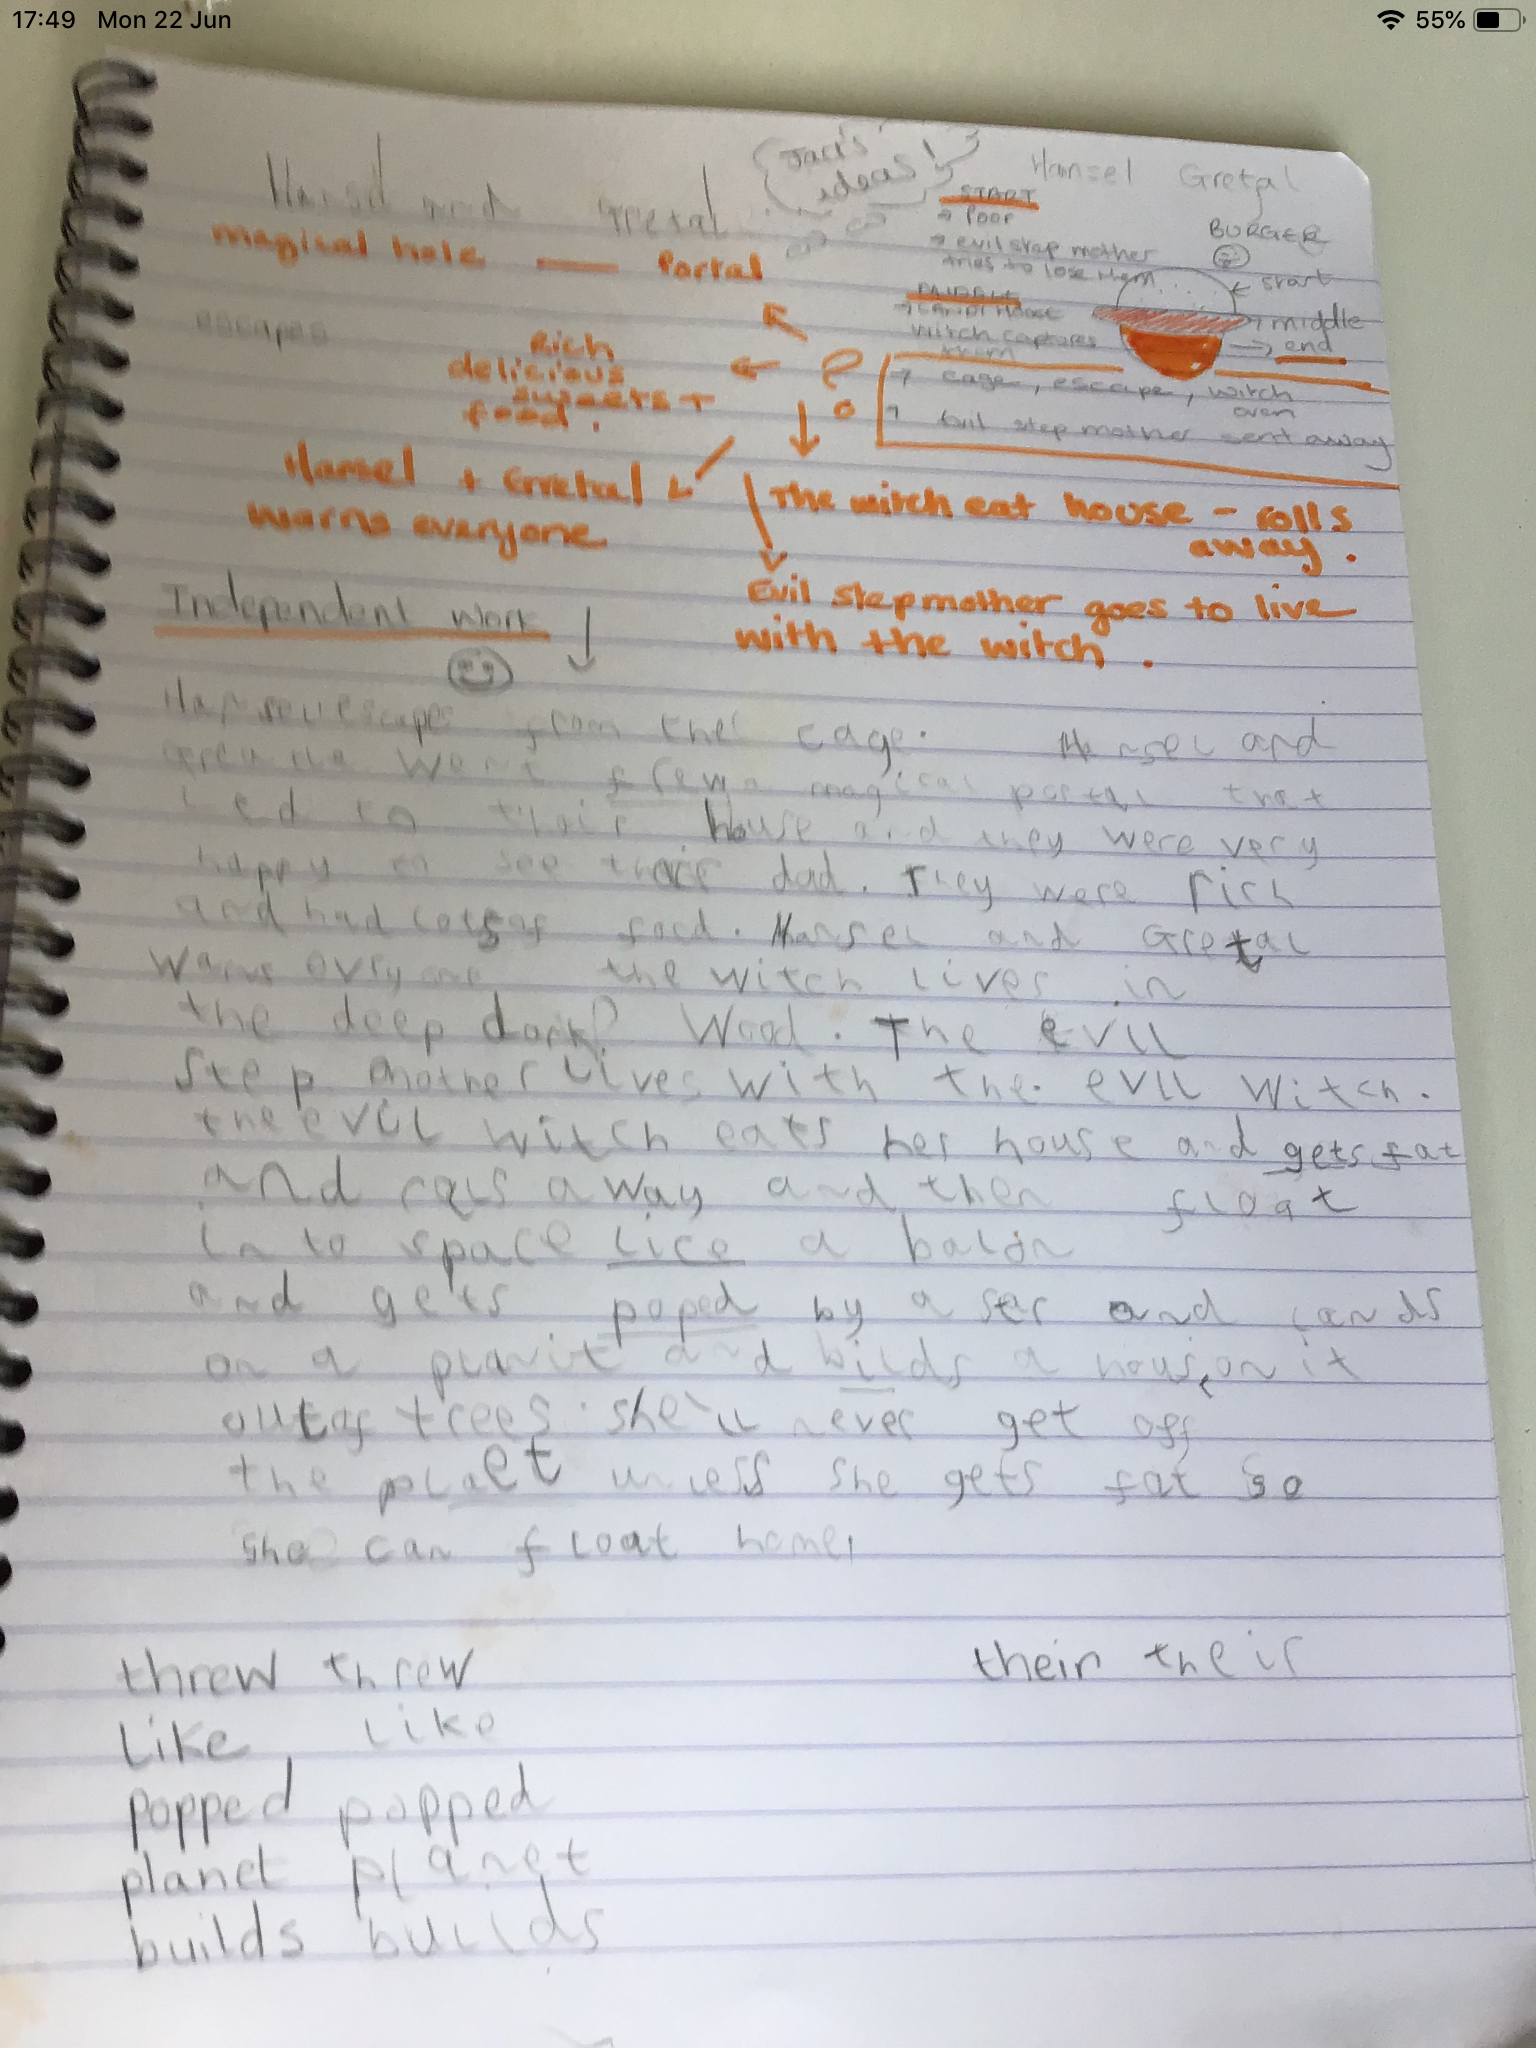 17:49 Mon 22 Jun
55%
Hansel and Gretal
Jack's
ideas!
Hansel Gretal
START
→ Poor
→ evil step mother
tries to lose them
BURGER
← start
→ middle
→ end
MIDDLE
→ CANDY House
witch captures
them
→ cage, escape, witch
oven
→ Evil step mother sent away
magical hole — Portal
escapes
Rich
delicious
sweets +
food.
Hansel + Gretal
warns everyone
The witch eat house - rolls
away.
Evil stepmother goes to live
with the witch.
Independent work
escapes from the cage. Hansel and
went frew a magical portal that
Led to their house and they were very
happy to see their dad. They were rich
and had lots of food. Hansel and Gretal
warns evryone the witch lives in
the deep dark Wood. The evil
Step mother Lives with the evil Witch.
the evil witch eats her house and gets fat
and rols away and then float
in to space lice a baloon
and gets poped by a star and lands
on a planit and bilds a house on it
out of trees. she'll never get off
the planet unless she gets fat so
she can float home.
threw threw
their their
like, like
popped popped
planet planet
builds builds